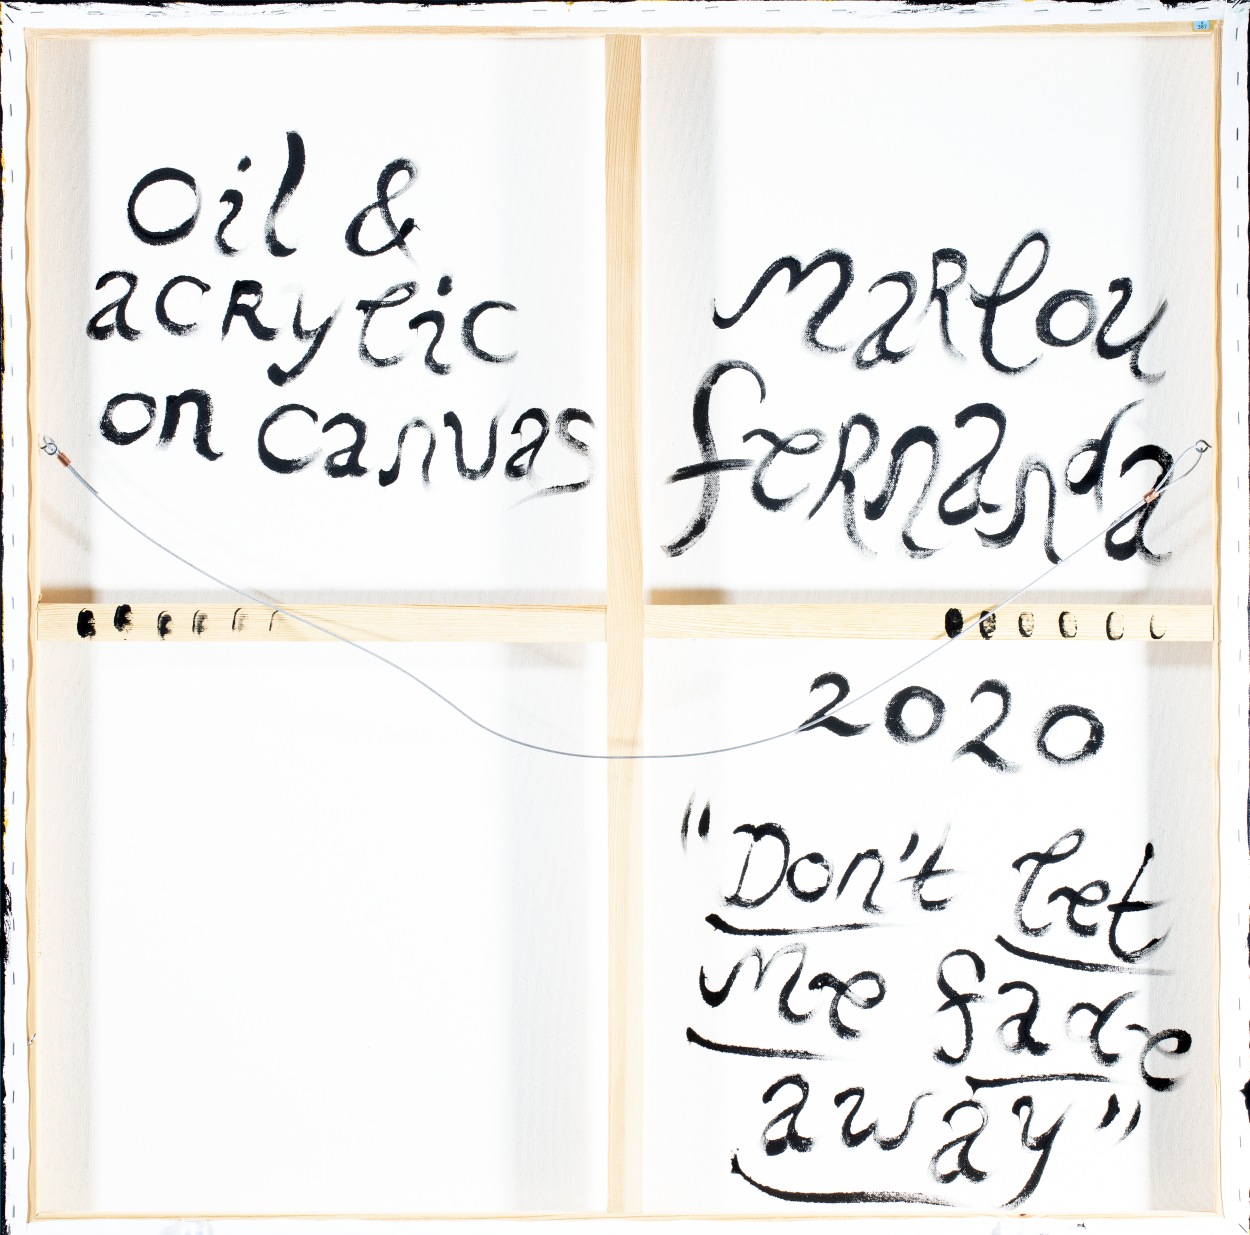 Oil &
acrylic
on canvas
Marlou
fernanda
2020
"Don't let
Me fade
away"